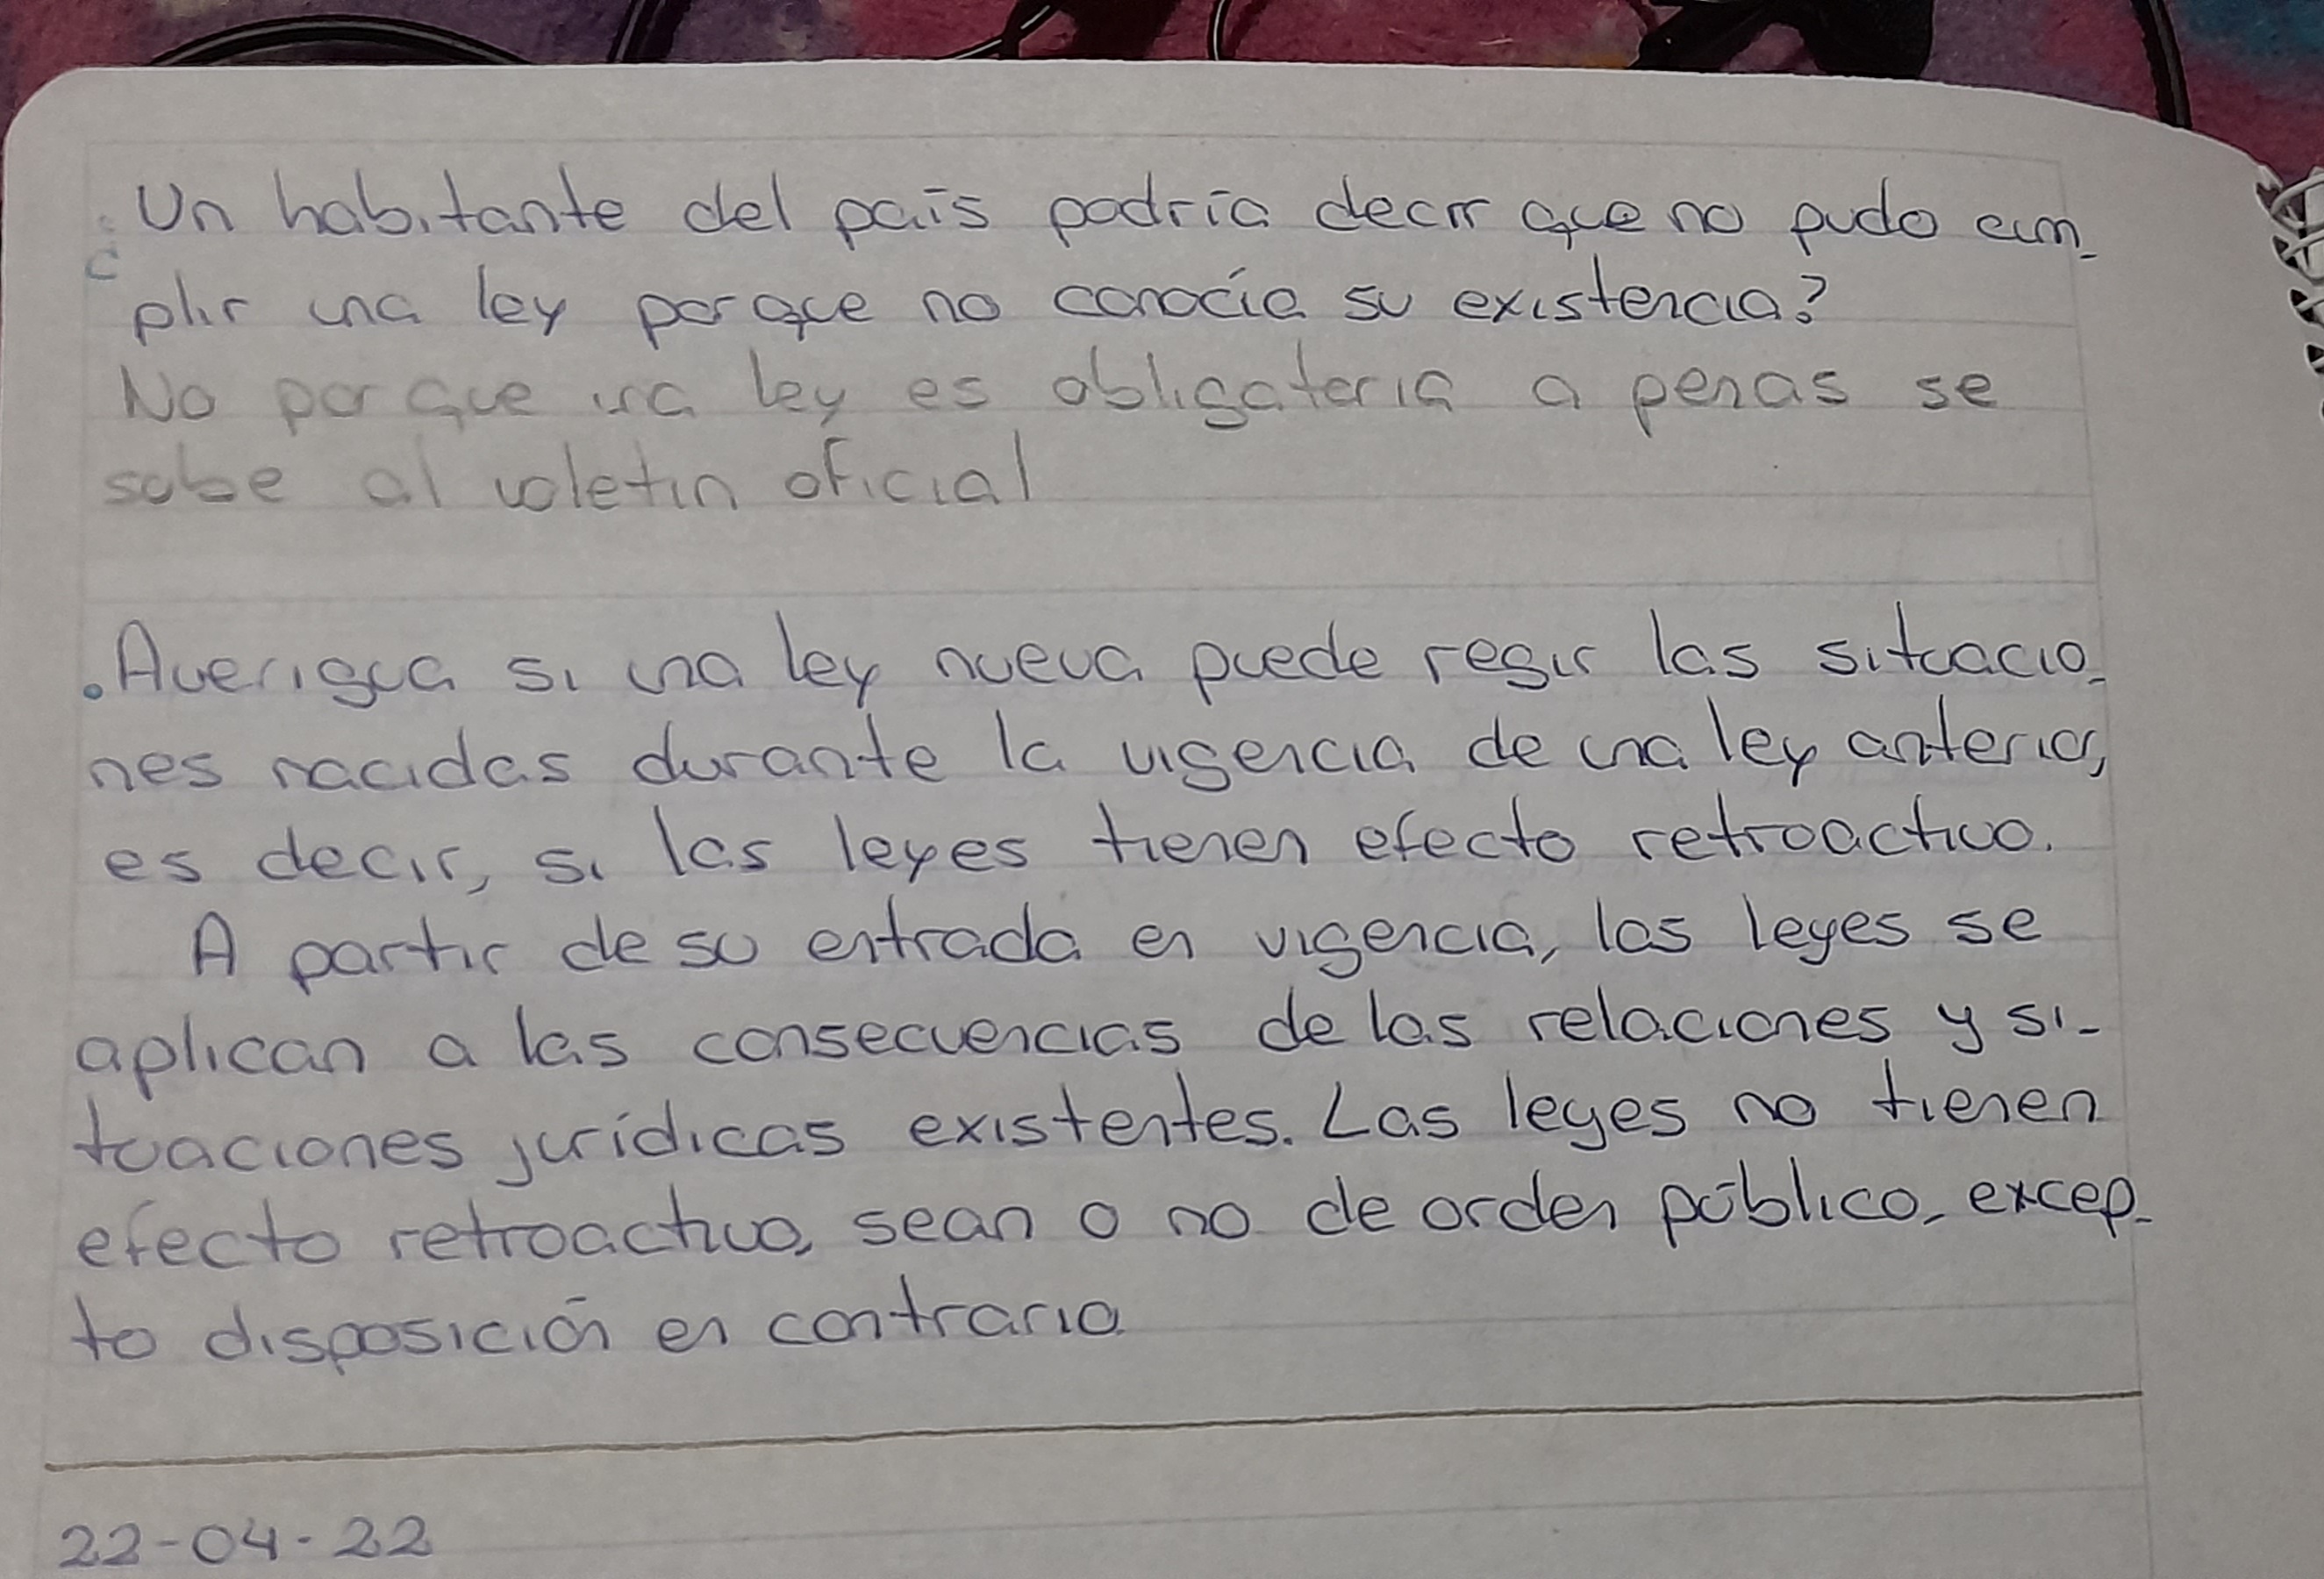 ¿Un habitante del país podría decir que no pudo cum-
plir una ley porque no conocía su existencia?
No por que una ley es obligatoria a penas se
sube al voletin oficial
. Averigua si una ley nueva puede regir las situacio-
nes nacidas durante la vigencia de una ley anterior,
es decir, si las leyes tienen efecto retroactivo.
A partir de su entrada en vigencia, las leyes se
aplican a las consecuencias de las relaciones y si-
tuaciones jurídicas existentes. Las leyes no tienen
efecto retroactivo, sean o no de orden público, excep-
to disposición en contrario
22-04-22